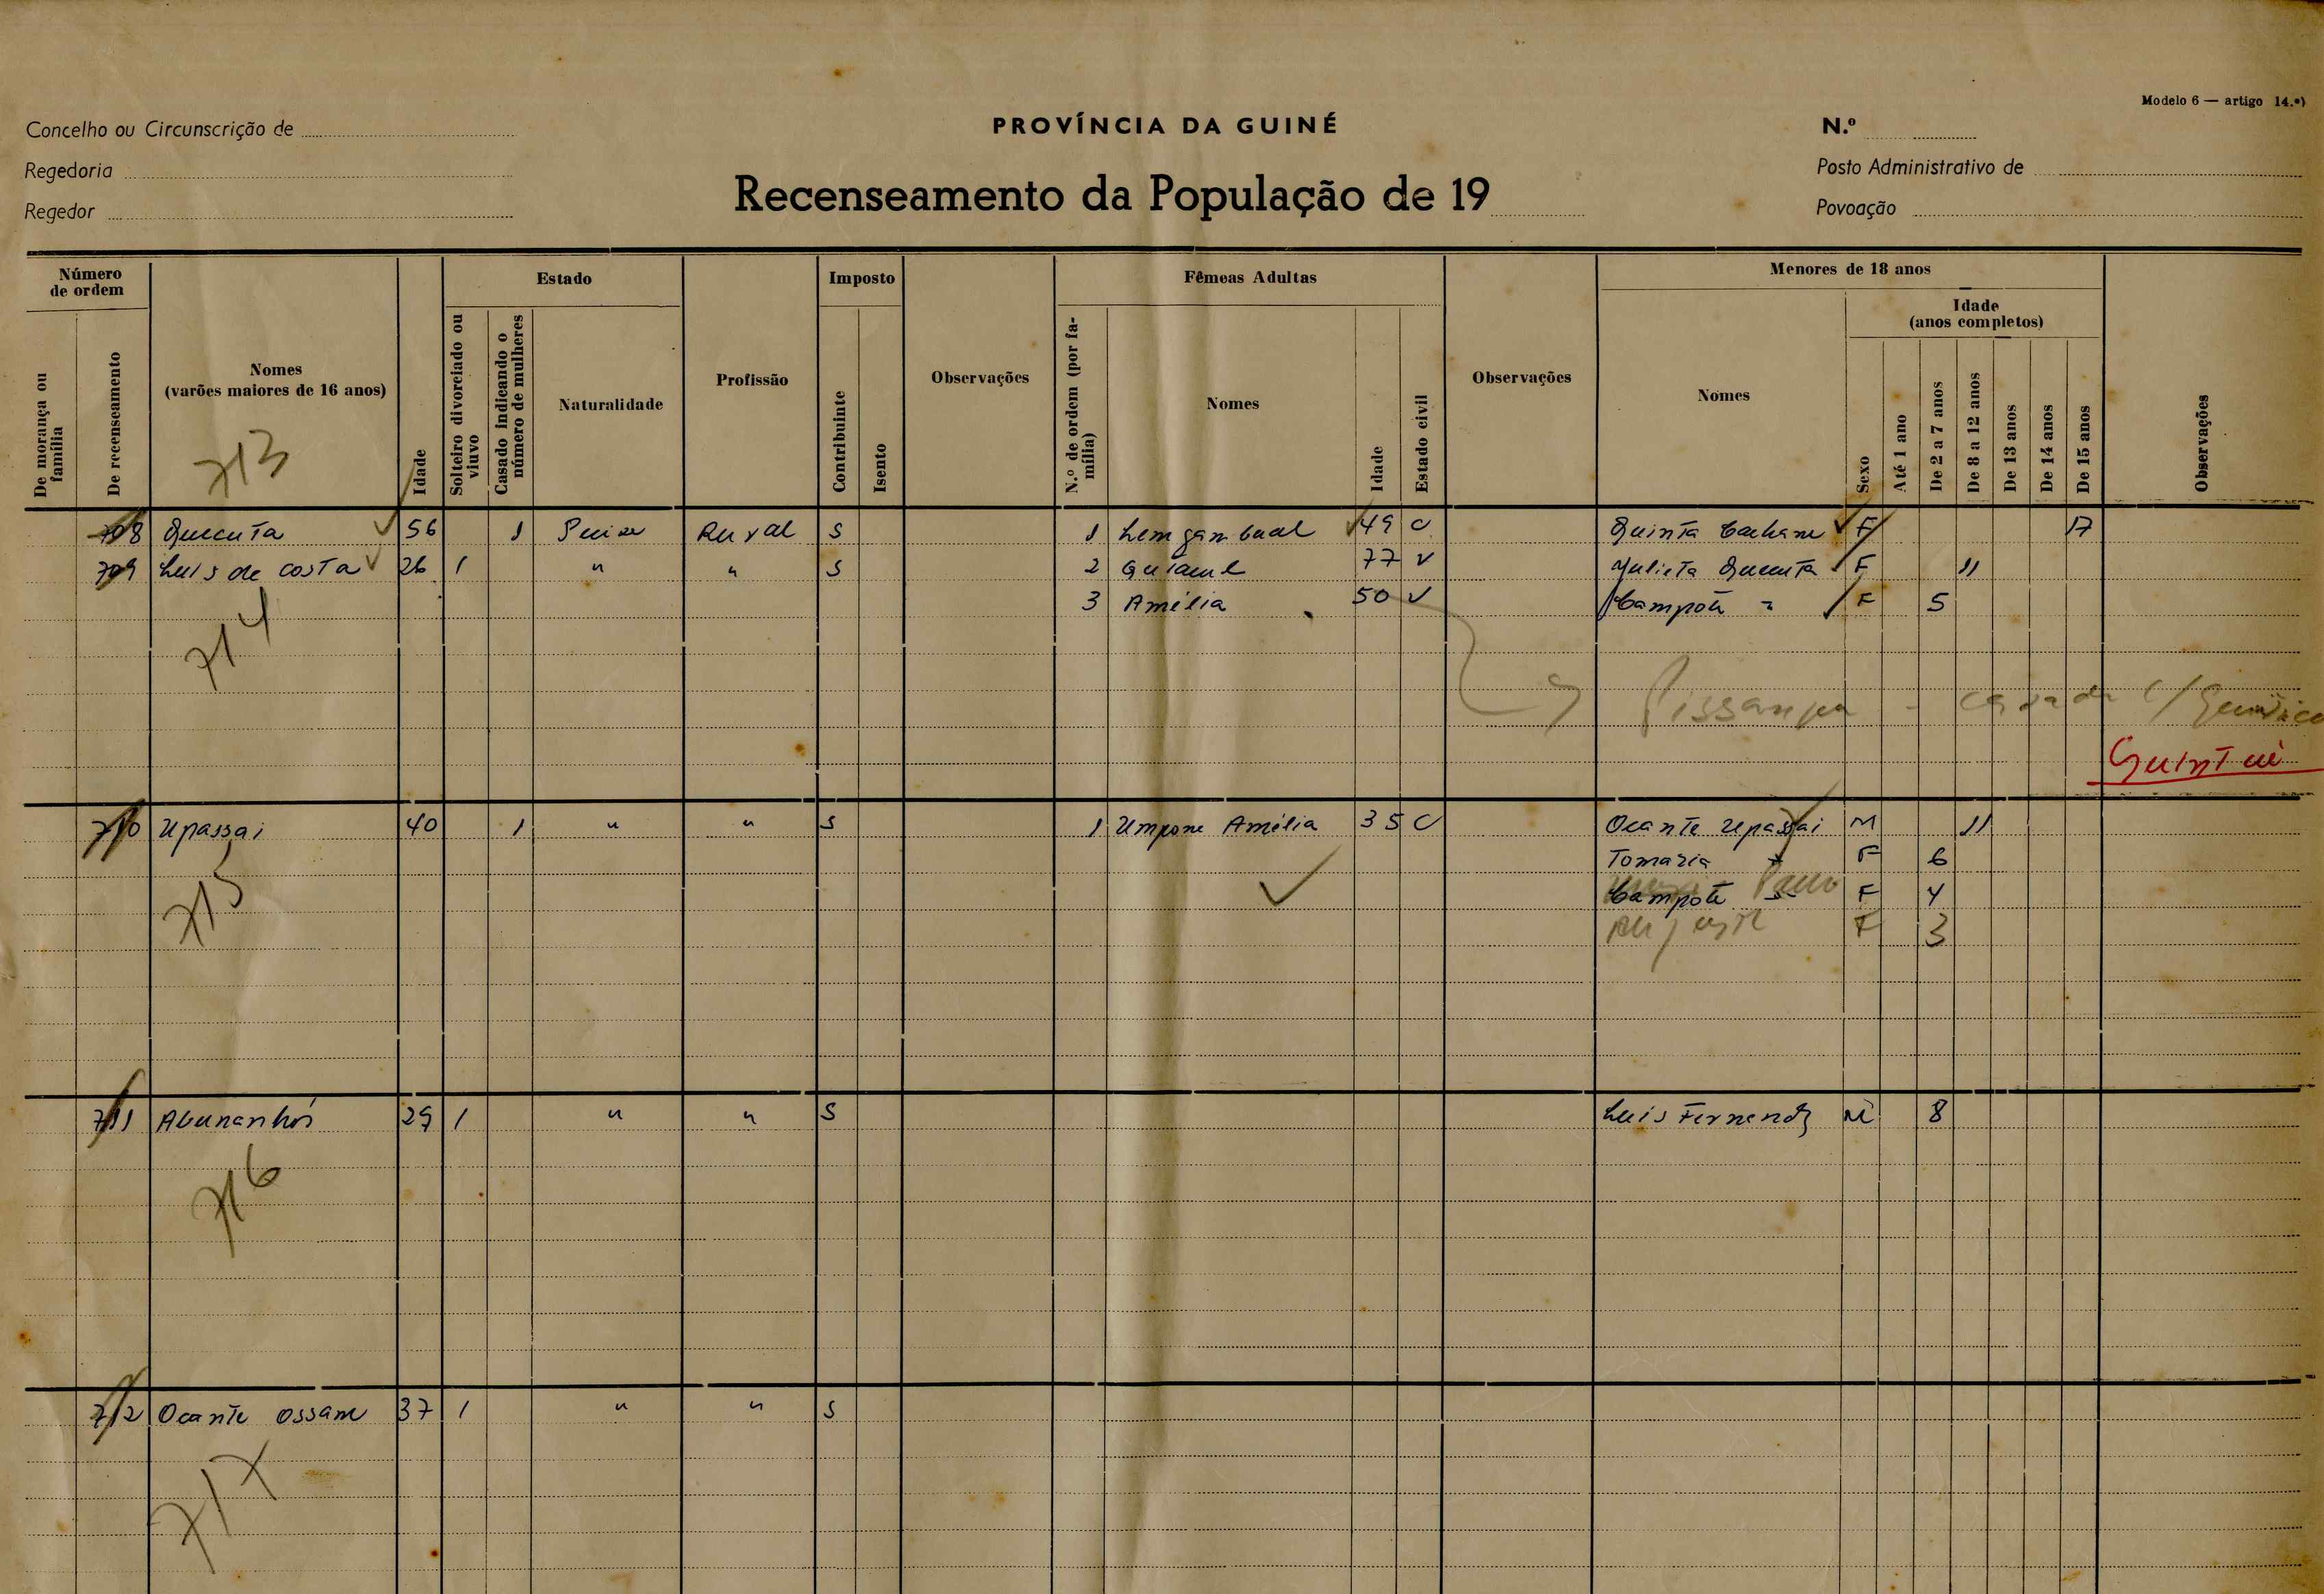 Modelo 6 — artigo 14.º)
Concelho ou Circunscrição de
PROVÍNCIA DA GUINÉ
N.º
Regedoria
Posto Administrativo de
Regedor
Recenseamento da População de 19
Povoação
Número de ordem
De morança ou família
De recenseamento
Nomes
(varões maiores de 16 anos)
Idade
Estado
Solteiro divorciado ou viuvo
Casado indicando o número de mulheres
Naturalidade
Profissão
Imposto
Contribuinte
Isento
Observações
Fêmeas Adultas
N.º de ordem (por família)
Nomes
Idade
Estado civil
Observações
Menores de 18 anos
Nomes
Sexo
Idade
(anos completos)
Até 1 ano
De 2 a 7 anos
De 8 a 12 anos
De 13 anos
De 14 anos
De 15 anos
Observações
713
708 Quecuta 56 1 Rural S 1 49 C Quinta F 17
709 Luis de costa 26 1 " " S 2 77 V Julieta Quecuta F 11
3 Amélia 50 V Campoté " F 5
714
casada c/
710 Upassai 40 1 " " S 1 Umpone Amélia 35 C Ocante Upassai M 11
Tomazia " F 6
715 Campoté F 4
F 3
711 29 1 " " S Luis Fernandz M 8
716
712 Ocante Ossame 37 1 " " S
717